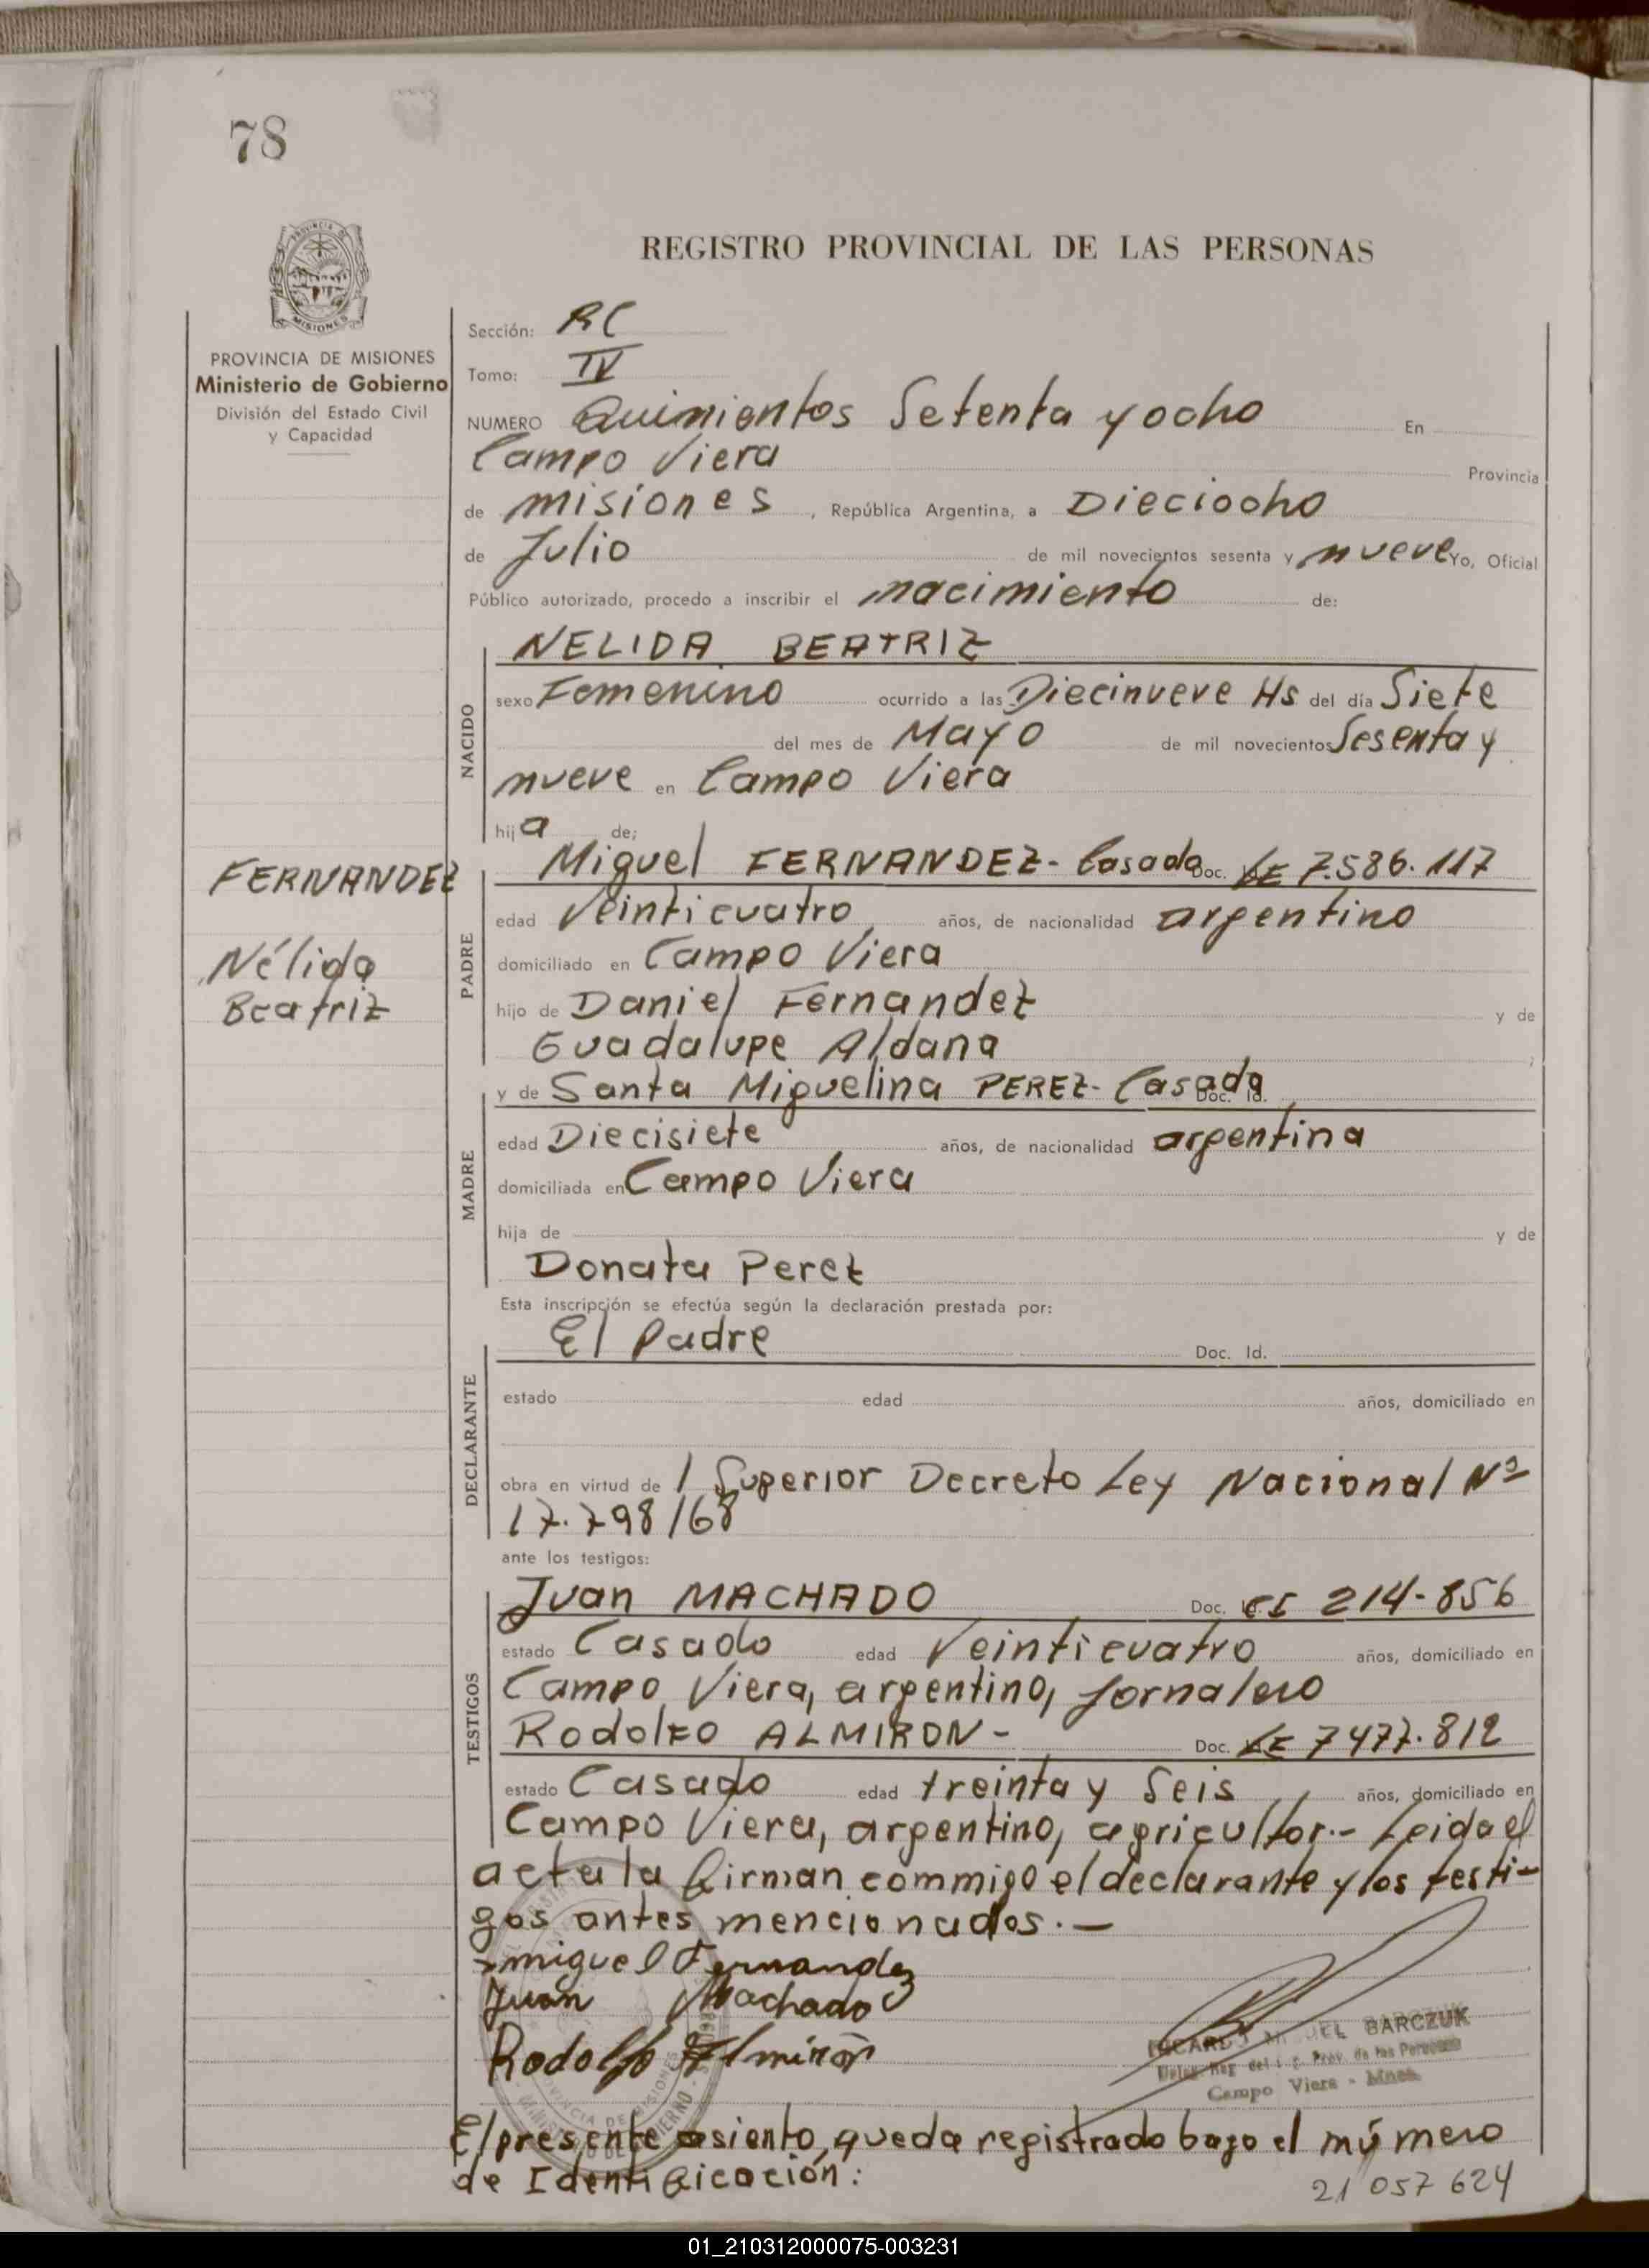 78
REGISTRO PROVINCIAL DE LAS PERSONAS
MISIONES
PROVINCIA DE MISIONES
Ministerio de Gobierno
División del Estado Civil
y Capacidad
Sección: RC
Tomo: IV
NUMERO Quinientos Setenta y ocho En
Campo Viera Provincia
de misiones, República Argentina, a Dieciocho
de Julio de mil novecientos sesenta y nueve Yo, Oficial
Público autorizado, procedo a inscribir el nacimiento de:
NACIDO
NELIDA BEATRIZ
sexo Femenino ocurrido a las Diecinueve Hs del día Siete
del mes de Mayo de mil novecientos Sesenta y
nueve en Campo Viera
hija de;
FERNANDEZ
Nélida
Beatriz
PADRE
Miguel FERNANDEZ- Casado Doc. LE 7.586.117
edad Veinticuatro años, de nacionalidad argentino
domiciliado en Campo Viera
hijo de Daniel Fernandez y de
Guadalupe Aldana ;
MADRE
y de Santa Miguelina PEREZ- Casada Doc. Id.
edad Diecisiete años, de nacionalidad argentina
domiciliada en Campo Viera
hija de y de
Donata Perez
Esta inscripción se efectúa según la declaración prestada por:
DECLARANTE
El Padre Doc. Id.
estado edad años, domiciliado en
obra en virtud de l Superior Decreto Ley Nacional Nº
17.798/68
ante los testigos:
TESTIGOS
Juan MACHADO Doc. CI 214-856
estado Casado edad Veinticuatro años, domiciliado en
Campo Viera, argentino, Jornalero
Rodolfo ALMIRON- Doc. LE 7477.812
estado Casado edad treinta y Seis años, domiciliado en
Campo Viera, argentino, agricultor.- Leida el
acta la firman commigo el declarante y los testi-
gos antes mencionados.-
miguel Fernandez
Juan Machado
Rodolfo Almirón
BARCZUK
Campo Viera - Mnes.
El presente asiento, queda registrado bajo el número
de Identificación: 21 057 624
01_210312000075-003231